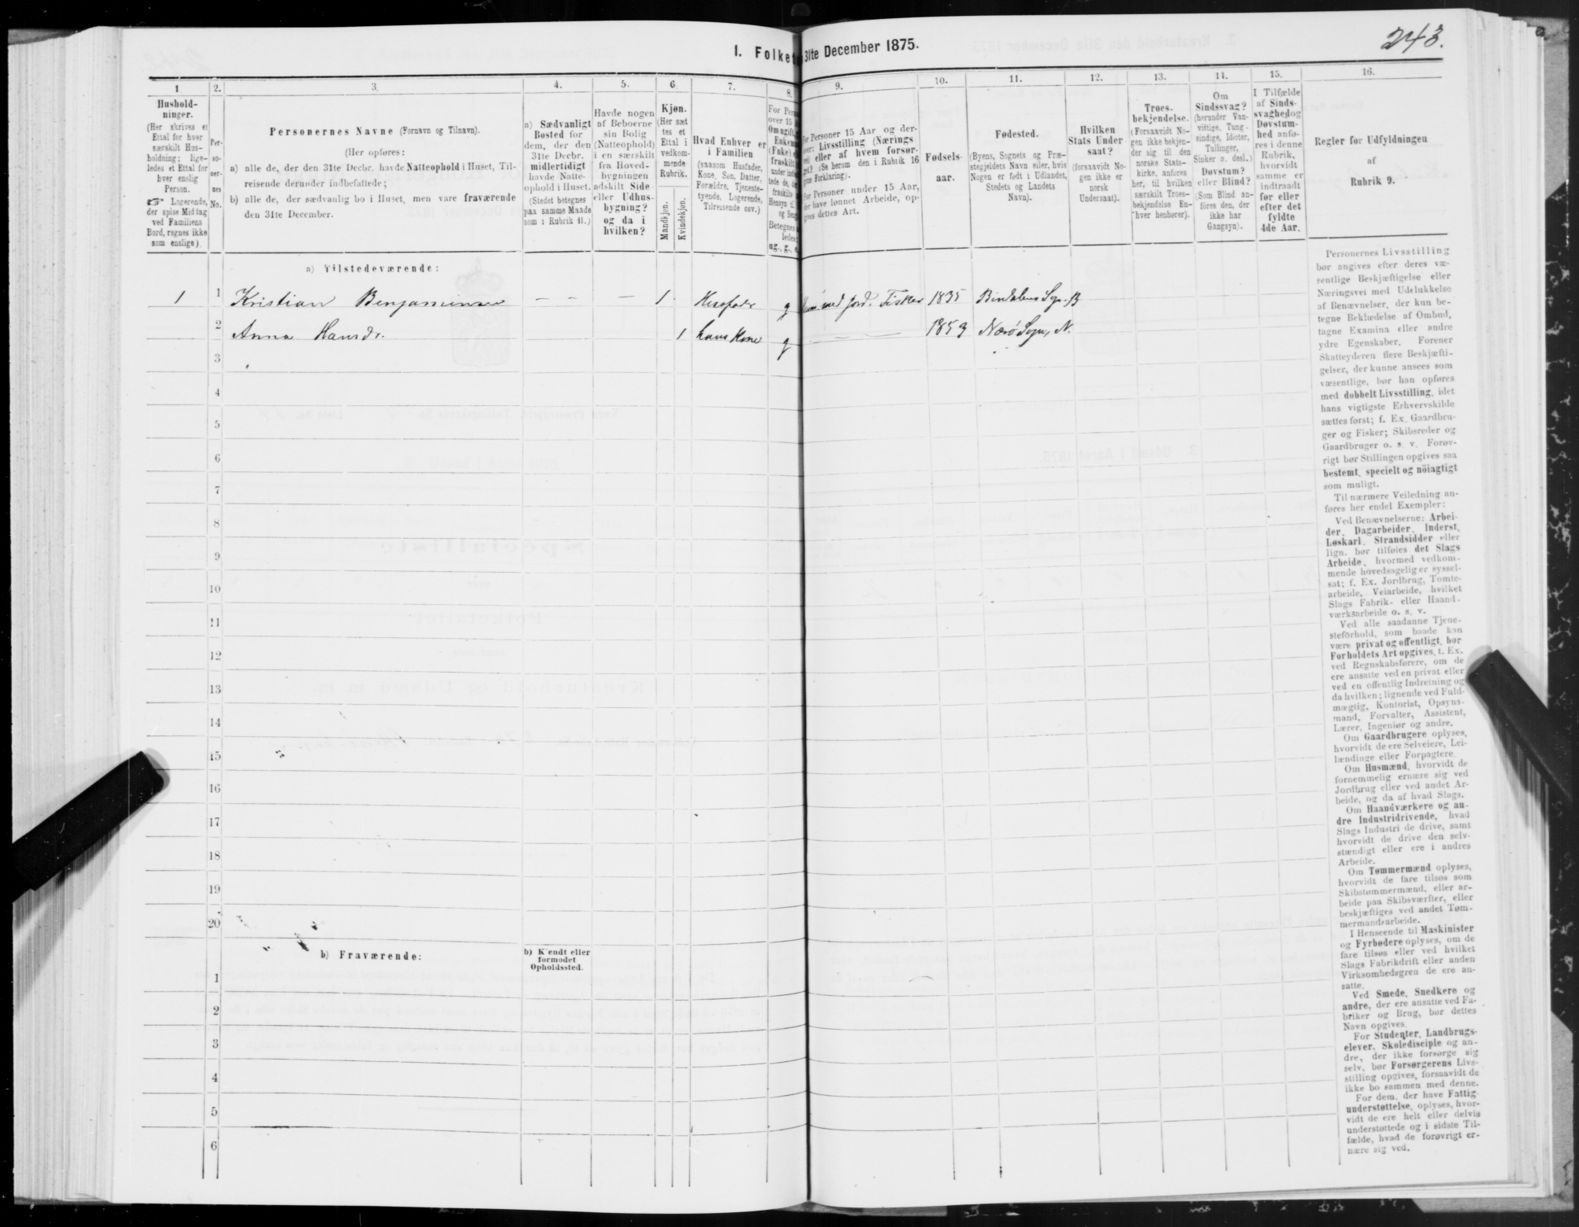 243.
I. Folket
31te December 1875.
1
2.
3.
4.
5.
6
7.
8.
9.
10.
11.
12.
13.
14.
15.
16.
Hushold-
ninger.
(Her skrives et
Ettal for hver
særskilt Hus-
holdning; lige-
ledes et Ettal for
hver enslig
Person.
☞ Logerende,
der spise Middag
ved Familiens
Bord, regnes ikke
som enslige).
Per-
so-
ner-
nes
No.
Personernes Navne (Fornavn og Tilnavn).
(Her opføres:
a) alle de, der den 31te Decbr. havde Natteophold i Huset, Til-
reisende derunder indbefattede;
b) alle de, der sædvanlig bo i Huset, men vare fraværende
den 31te December.
a) Sædvanligt
Bosted for
dem, der den
31te Decbr.
midlertidigt
havde Natte-
ophold i Huset.
(Stedet betegnes
paa samme Maade
som i Rubrik 11.)
Havde nogen
af Beboerne
sin Bolig
(Natteophold)
i en særskilt
fra Hoved-
bygningen
adskilt Side-
eller Udhus-
bygning?
og da i
hvilken?
Kjøn.
(Her sæt-
tes et
Ettal i
vedkom-
mende
Rubrik.
Mandkjøn.
Kvindekjøn.
Hvad Enhver er
i Familien
(saasom Husfader,
Kone, Søn, Datter,
Forældre, Tjeneste-
tyende, Logerende,
Tilreisende osv.)
For Personer 15 Aar og der-
over: Livsstilling (Nærings-
vei) eller af hvem forsør-
get? (Se herom den i Rubrik 16
givne Forklaring).
For Personer under 15 Aar,
der have lønnet Arbeide, op-
gives dettes Art.
Fødsels-
aar.
Fødested.
(Byens, Sognets og Præ-
stegjeldets Navn eller, hvis
Nogen er født i Udlandet,
Stedets og Landets
Navn).
Hvilken
Stats Under-
saat?
(forsaavidt No-
gen ikke er
norsk
Undersaat).
Troes-
bekjendelse.
(Forsaavidt No-
gen ikke bekjen-
der sig til den
norske Stats-
kirke, anføres
her, til hvilken
særskilt Troes-
bekjendelse En-
hver henhører).
Om
Sindssvag?
(herunder Van-
vittige, Tung-
sindige, Idioter,
Tullinger,
Sinker o. desl.)
Døvstum?
eller Blind?
(Som Blind an-
føres den, der
ikke har
Gangsyn).
I Tilfælde
af Sinds-
svaghed og
Døvstum-
hed anfø-
res i denne
Rubrik,
hvorvidt
samme er
indtraadt
før eller
efter det
fyldte
4de Aar.
Regler for Udfyldningen
af
Rubrik 9.
a) Tilstedeværende:
1 1 Kristian Benjaminsen — — — 1. Husfader g 1835 Bindalens Sogn B
2 Anna Hansdr. 1 hans Kone g — — 1859 Nærø Sogn, N.
3
4
5
6
7
8
9
10
11
12
13
14
15
16
17
18
19
20
b) Fraværende:
b) Kjendt eller
formodet
Opholdssted.
1
2
3
4
5
6
Personernes Livsstilling
bør angives efter deres væ-
sentlige Beskjæftigelse eller
Næringsvei med Udelukkelse
af Benævnelser, der kun be-
tegne Beklædelse af Ombud,
tagne Examina eller andre
ydre Egenskaber. Forener
Skatteyderen flere Beskjæfti-
gelser, der kunne ansees som
væsentlige, bør han opføres
med dobbelt Livsstilling, idet
hans vigtigste Erhvervskilde
sættes først; f. Ex. Gaardbru-
ger og Fisker; Skibsreder og
Gaardbruger o. s. v. Forøv-
rigt bør Stillingen opgives saa
bestemt, specielt og nöiagtigt
som muligt.
Til nærmere Veiledning an-
føres her endel Exempler:
Ved Benævnelserne: Arbei-
der, Dagarbeider, Inderst,
Løskarl, Strandsidder eller
lign. bør tilføies det Slags
Arbeide, hvormed vedkom-
mende hovedsagelig er syssel-
sat; f. Ex. Jordbrug, Tomte-
arbeide, Veiarbeide, hvilket
Slags Fabrik- eller Haand-
værksarbeide o. s. v.
Ved alle saadanne Tjene-
steforhold, som baade kan
være privat og offentligt, bør
Forholdets Art opgives, f. Ex.
ved Regnskabsførere, om de
ere ansatte ved en privat eller
ved en offentlig Indretning og
da hvilken; lignende ved Fuld-
mægtig, Kontorist, Opsyns-
mand, Forvalter, Assistent,
Lærer, Ingeniør og andre.
Om Gaardbrugere oplyses,
hvorvidt de ere Selveiere, Lei-
lændinge eller Forpagtere.
Om Husmænd, hvorvidt de
fornemmelig ernære sig ved
Jordbrug eller ved andet Ar-
beide, og da af hvad Slags.
Om Haandværkere og an-
dre Industridrivende, hvad
Slags Industri de drive, samt
hvorvidt de drive den selv-
stændigt eller ere i andres
Arbeide.
Om Tømmermænd oplyses,
hvorvidt de fare tilsøs som
Skibstømmermænd, eller ar-
beide paa Skibsværfter, eller
beskjæftiges ved andet Tøm-
mermandsarbeide.
I Henseende til Maskinister
og Fyrbødere oplyses, om de
fare tilsøs eller ved hvilket
Slags Fabrikdrift eller anden
Virksomhedsgren de ere an-
satte.
Ved Smede, Snedkere og
andre, der ere ansatte ved Fa-
briker og Brug, bør dettes
Navn opgives.
For Studenter, Landbrugs-
elever, Skoledisciple og an-
dre, der ikke forsørge sig
selv, bør Forsørgerens Livs-
stilling opgives, forsaavidt de
ikke bo sammen med denne.
For dem, der have Fattig-
understøttelse, oplyses, hvor-
vidt de ere helt eller delvis
understøttede og i sidste Til-
fælde, hvad de forøvrigt er-
nære sig ved.